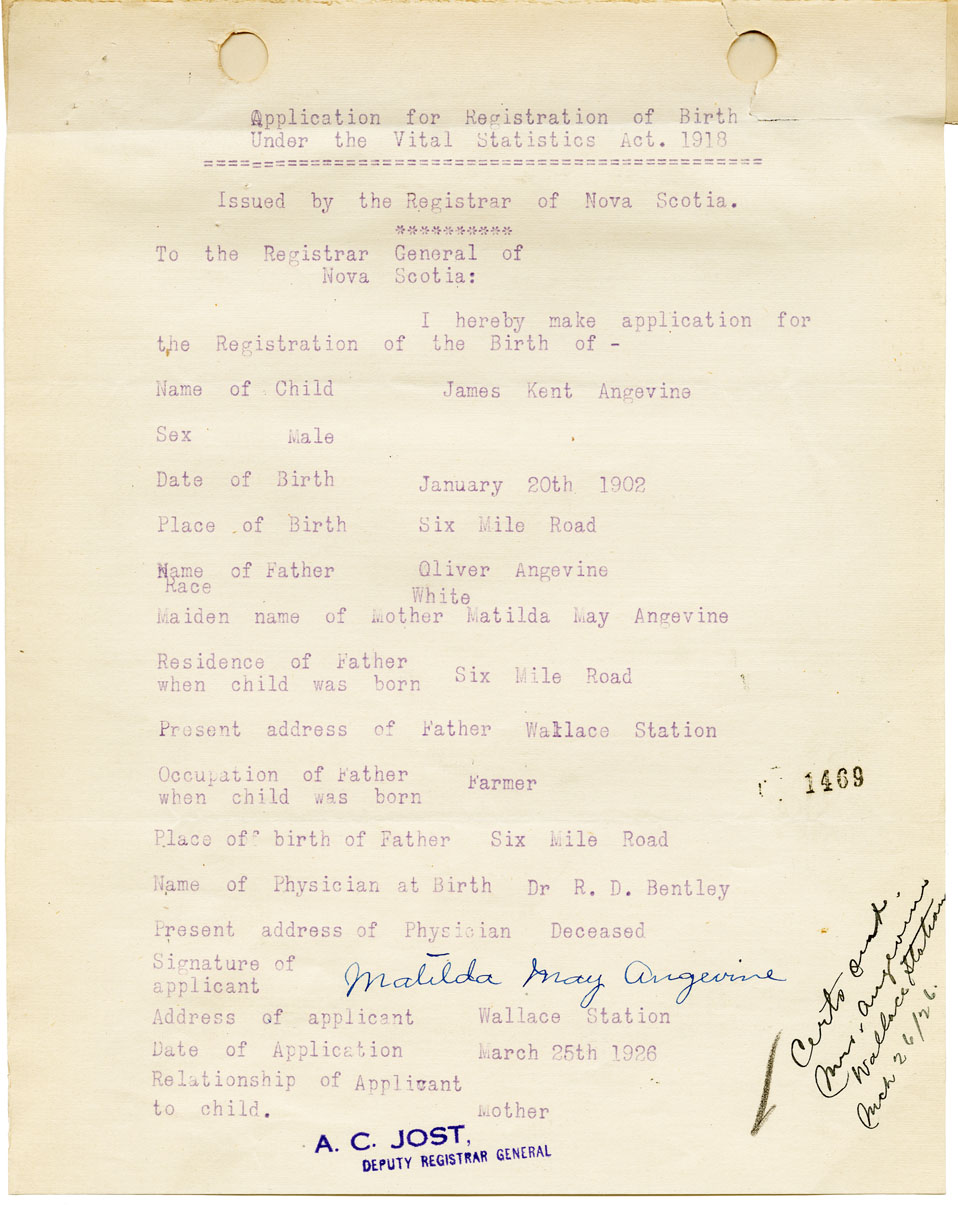 Application for Registration of Birth
Under the Vital Statistics Act. 1918
================================================
Issued by the Registrar of Nova Scotia.
**********
To the Registrar General of
Nova Scotia:
I hereby make application for
the Registration of the Birth of -
Name of Child James Kent Angevine
Sex Male
Date of Birth January 20th 1902
Place of Birth Six Mile Road
Name of Father Oliver Angevine
Race White
Maiden name of Mother Matilda May Angevine
Residence of Father
when child was born Six Mile Road
Present address of Father Wallace Station
Occupation of Father
when child was born Farmer
1469
Place off birth of Father Six Mile Road
Name of Physician at Birth Dr R. D. Bentley
Present address of Physician Deceased
Signature of
applicant Matilda May Angevine
Address of applicant Wallace Station
Date of Application March 25th 1926
Relationship of Applicant
to child. Mother
A. C. JOST,
DEPUTY REGISTRAR GENERAL
Certs
Mrs. Angevine
Wallace Station
Mch 26/26.